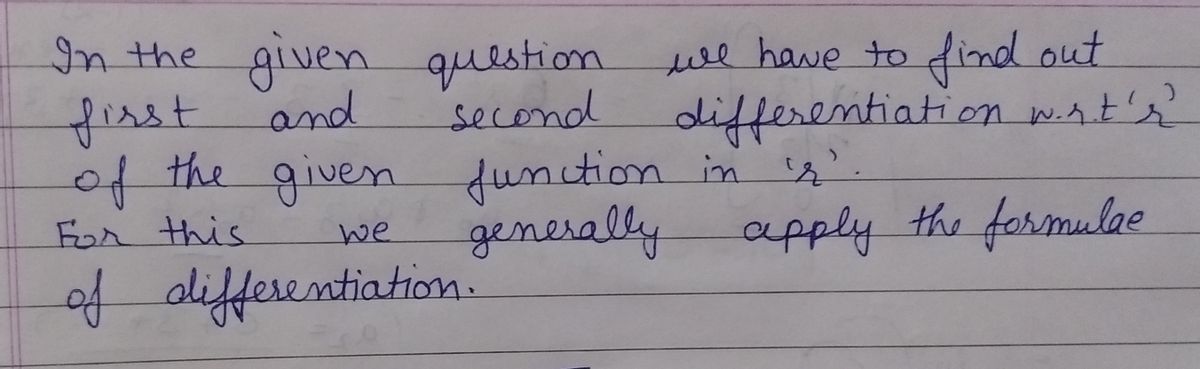 In the given question we have to find out
first and second differentiation w.r.t 'r'
of the given function in 'r'.
For this we generally apply the formulae
of differentiation.